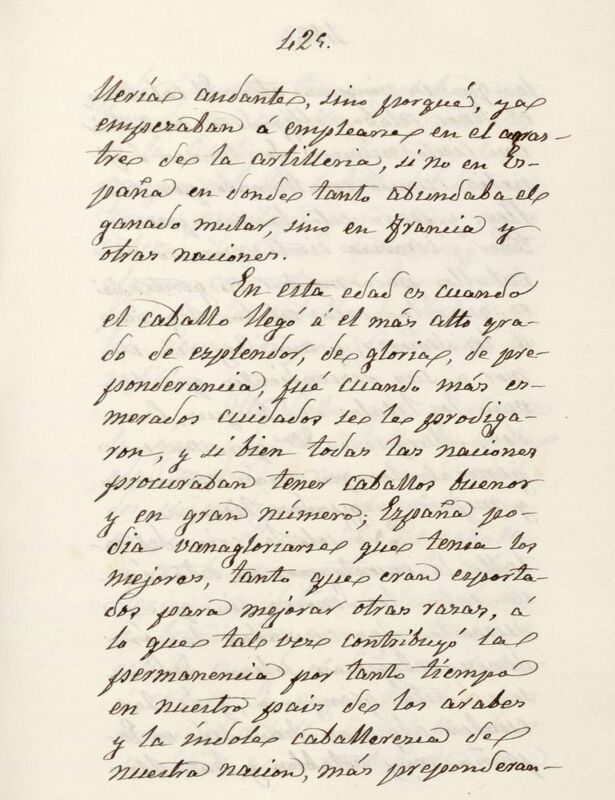 425.
llería andante, sino porqué, ya
empezaban á emplearse en el arras-
tre de la artilleria, si no en Es-
paña en donde tanto abundaba el
ganado mular, sino en Francia y
otras naciones.
En esta edad es cuando
el caballo llegó á el más alto gra-
do de esplendor, de gloria, de pre-
ponderancia, fué cuando más es-
merados cuidados se le prodiga-
ron, y si bien todas las naciones
procuraban tener caballos buenos
y en gran número; España po-
dia vanagloriarse que tenia los
mejores, tanto que eran exporta-
dos para mejorar otras razas, á
lo que tal vez contribuyó la
permanencia por tanto tiempo
en nuestro pais de los árabes
y la índole caballeresca de
nuestra nacion, más preponderan-